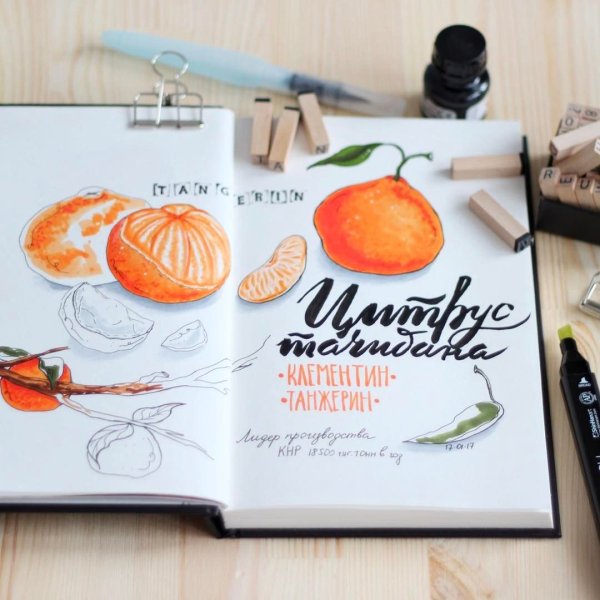 TANGERIN
Цитрус
тачибана
•КЛЕМЕНТИН•
•ТАНЖЕРИН•
Лидер производства
КНР 18500 тыс. тонн в год
12.01.17